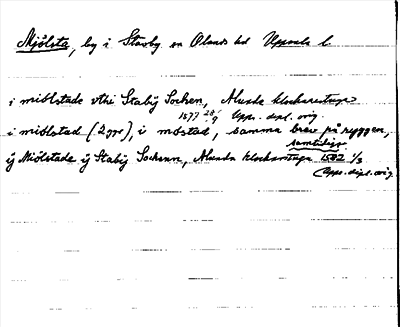 Mjölsta, by i Stavby sn Olands hd Uppsala l.
i miölstade vthi Stabÿ Sochen, Alunda klockarestuga
1577 28/9 Upps. dipl. orig.
i miölstad (2 ggr), i möstad, samma brev på ryggen,
samtidigt
ÿ Miölstade ÿ Stabÿ Sochenn, Alunda klockarstuga 1582 1/3
Upps. dipl. orig.